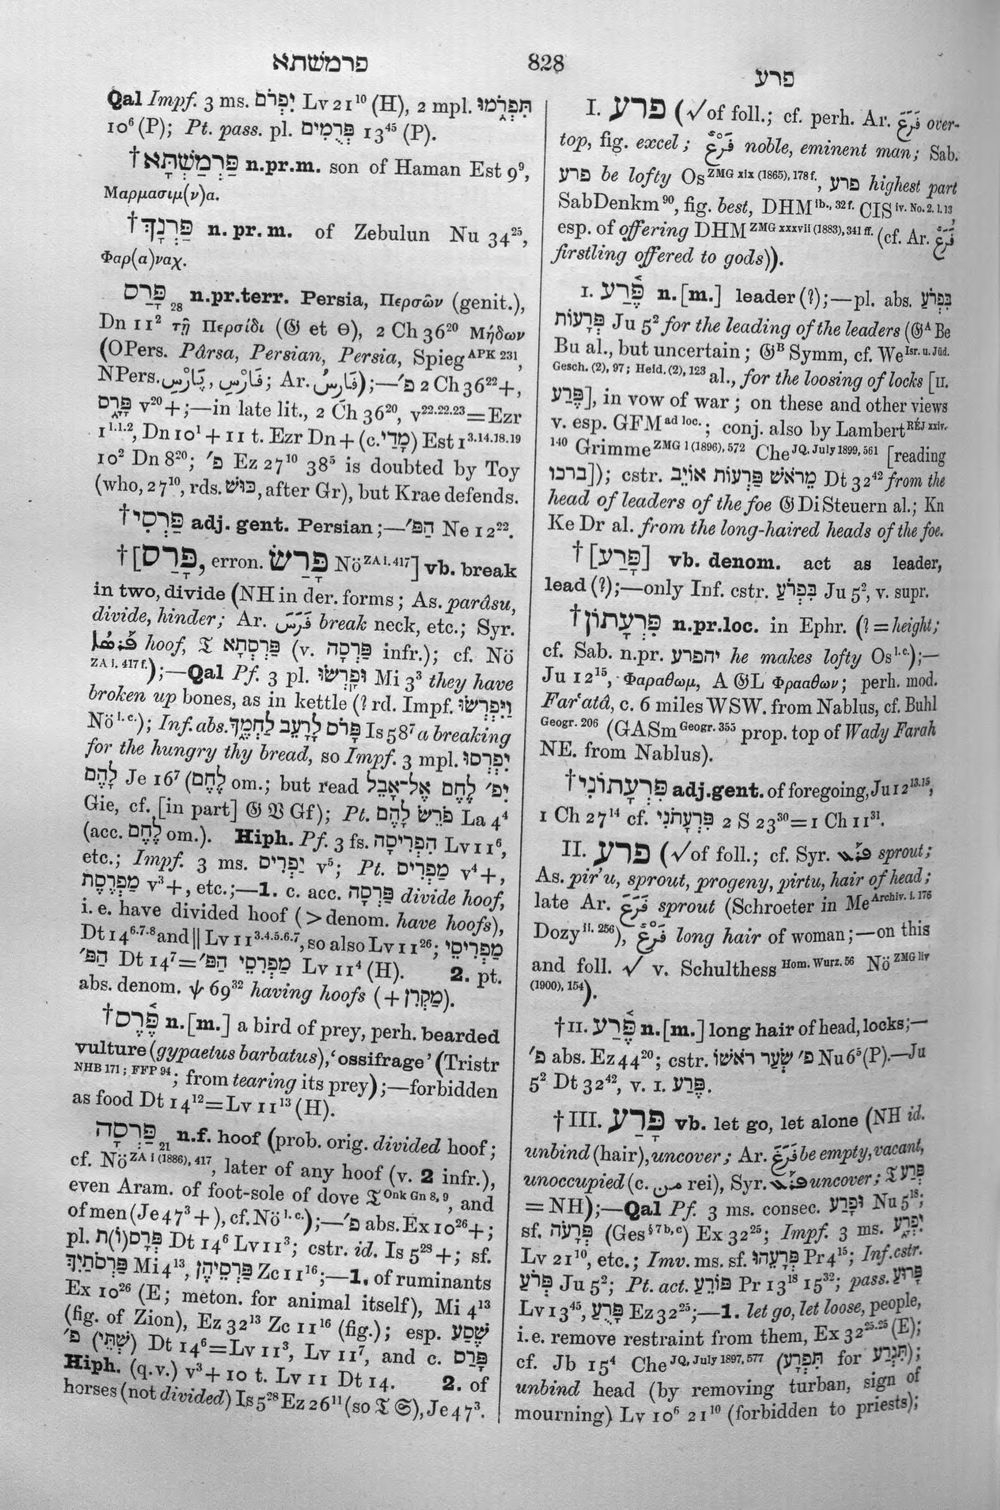 פרמשתא
828
פרע
Qal Impf. 3 ms. יִפְרֹם Lv 21¹⁰ (H), 2 mpl. תִּפְרֹ֑מוּ
10⁶ (P); Pt. pass. pl. פְּרֻמִים 13⁴⁵ (P).
†פַּרְמַשְׁתָּא n.pr.m. son of Haman Est 9⁹,
Μαρμασιμ(ν)α.
†פַּרְנָךְ n. pr. m. of Zebulun Nu 34²⁵,
Φαρ(α)ναχ.
פָּרַס ₂₈ n.pr.terr. Persia, Περσῶν (genit.),
Dn 11² τῇ Περσίδι (𝔊 et Θ), 2 Ch 36²⁰ Μήδων
(OPers. Pârsa, Persian, Persia, Spieg APK 231,
NPers. پارس, فارس; Ar. فَارِس);—פ׳ 2 Ch 36²²+,
פָּרָ֑ס v²⁰+;—in late lit., 2 Ch 36²⁰, v²²·²²·²³=Ezr
1¹·¹·², Dn 10¹ + 11 t. Ezr Dn + (c. מָדַי) Est 1³·¹⁴·¹⁸·¹⁹
10² Dn 8²⁰; פ׳ Ez 27¹⁰ 38⁵ is doubted by Toy
(who, 27¹⁰, rds. כּוּשׁ, after Gr), but Krae defends.
†פַּרְסִי adj. gent. Persian;—הַפּ׳ Ne 12²².
†[פָּרַס, erron. פָּרַשׂ Nö ZA i. 417] vb. break
in two, divide (NH in der. forms; As. parâsu,
divide, hinder; Ar. فَرَسَ break neck, etc.; Syr.
hoof, 𝔗 פַּרְסְתָא (v. פַּרְסָה infr.); cf. Nö
ZA i. 417 f.);—Qal Pf. 3 pl. וּפָֽרְשׂוּ Mi 3³ they have
broken up bones, as in kettle (? rd. Impf. וַיִּפְרְשׂוּ
Nö l.c.); Inf. abs. פָּרֹס לָרָעֵב לַחְמֶ֑ךָ Is 58⁷ a breaking
for the hungry thy bread, so Impf. 3 mpl. יִפְרְסוּ
לָהֶם Je 16⁷ (לָהֶם om.; but read יִפ׳ לֶחֶם אֶל־אָבֵל
Gie, cf. [in part] 𝔊 𝔙 Gf); Pt. פֹּרֵשׂ לָהֶם La 4⁴
(acc. לֶחֶם om.). Hiph. Pf. 3 fs. הִפְרִיסָה Lv 11⁶,
etc.; Impf. 3 ms. יַפְרִים v⁵; Pt. מַפְרִים v⁴+,
מַפְרֶסֶת v³+, etc.;—1. c. acc. פַּרְסָה divide hoof,
i. e. have divided hoof (> denom. have hoofs),
Dt 14⁶·⁷·⁸ and ‖ Lv 11³·⁴·⁵·⁶·⁷, so also Lv 11²⁶; מַפְרִיסֵי
הַפּ׳ Dt 14⁷=מַפְרִסֵי הַפּ׳ Lv 11⁴ (H). 2. pt.
abs. denom. ψ 69³² having hoofs (+ מַקְרִן).
†פֶּ֫רֶס n. [m.] a bird of prey, perh. bearded
vulture (gypaetus barbatus), ‘ossifrage’ (Tristr
NHB 171; FFP 94; from tearing its prey);—forbidden
as food Dt 14¹²=Lv 11¹³ (H).
פַּרְסָה ₂₁ n.f. hoof (prob. orig. divided hoof;
cf. Nö ZA i (1886), 417, later of any hoof (v. 2 infr.),
even Aram. of foot-sole of dove 𝔗 Onk Gn 8, 9, and
of men (Je 47³ +), cf. Nö l.c.);—פ׳ abs. Ex 10²⁶+;
pl. פְּרָס(וֹ)ת Dt 14⁶ Lv 11³; cstr. id. Is 5²⁸+; sf.
פַּרְסֹתַיִךְ Mi 4¹³, פַּרְסֵיהֶן Zc 11¹⁶;—1. of ruminants
Ex 10²⁶ (E; meton. for animal itself), Mi 4¹³
(fig. of Zion), Ez 32¹³ Zc 11¹⁶ (fig.); esp. שֶׁסַע
פ׳ (שְׁתֵּי) Dt 14⁶=Lv 11³, Lv 11⁷, and c. פָּרַס
Hiph. (q.v.) v³ + 10 t. Lv 11 Dt 14. 2. of
horses (not divided) Is 5²⁸ Ez 26¹¹ (so 𝔗 𝔖), Je 47³.
I. פרע (√of foll.; cf. perh. Ar. فَرَعَ over-
top, fig. excel; فَرْعٌ noble, eminent man; Sab.
פרע be lofty Os ZMG xix (1865), 178 f., פרע highest part
SabDenkm 90, fig. best, DHM ib., 32 f. CIS iv. No. 2, 1. 13,
esp. of offering DHM ZMG xxxvii (1883), 341 ff. (cf. Ar. فَرَعٌ
firstling offered to gods)).
I. פֶּ֫רַע n. [m.] leader (?);—pl. abs. בִּפְרֹעַ
פְּרָעוֹת Ju 5² for the leading of the leaders (𝔊ᴬ Be
Bu al., but uncertain; 𝔊ᴮ Symm, cf. We Isr. u. Jüd.
Gesch. (2), 97; Heid. (2), 123 al., for the loosing of locks [II.
פֶּרַע], in vow of war; on these and other views
v. esp. GFM ad loc.; conj. also by Lambert RÉJ xxiv.
140 Grimme ZMG 1 (1896), 572 Che JQ. July 1899, 561 [reading
ברכו]); cstr. מֵרֹאשׁ פַּרְעוֹת אוֹיֵב Dt 32⁴² from the
head of leaders of the foe 𝔊 Di Steuern al.; Kn
Ke Dr al. from the long-haired heads of the foe.
†[פָּרַע] vb. denom. act as leader,
lead (?);—only Inf. cstr. בִּפְרֹעַ Ju 5², v. supr.
†פִּרְעָתוֹן n.pr.loc. in Ephr. (? = height;
cf. Sab. n.pr. יהפרע he makes lofty Os l.c.);—
Ju 12¹⁵, Φαραθωμ, A 𝔊L Φρααθων; perh. mod.
Farʿatâ, c. 6 miles WSW. from Nablus, cf. Buhl
Geogr. 206 (GASm Geogr. 355 prop. top of Wady Farah
NE. from Nablus).
†פִּרְעָתוֹנִי adj.gent. of foregoing, Ju 12¹³·¹⁵,
1 Ch 27¹⁴ cf. פִּרְעָתֹנִי 2 S 23³⁰=1 Ch 11³¹.
II. פרע (√of foll.; cf. Syr. sprout;
As. pirʾu, sprout, progeny, pirtu, hair of head;
late Ar. فَرَعَ sprout (Schroeter in Me Archiv. i. 176
Dozy ii. 256), فَرْعٌ long hair of woman;—on this
and foll. √ v. Schulthess Hom. Wurz. 56 Nö ZMG liv
(1900), 154).
†II. פֶּ֫רַע n. [m.] long hair of head, locks;—
פ׳ abs. Ez 44²⁰; cstr. פ׳ שְׂעַר רֹאשׁוֹ Nu 6⁵ (P).—Ju
5² Dt 32⁴², v. I. פֶּרַע.
†III. פָּרַע vb. let go, let alone (NH id.
unbind (hair), uncover; Ar. فَرَغَ be empty, vacant,
unoccupied (c. مِن rei), Syr. uncover; 𝔗 פְּרַע
= NH);—Qal Pf. 3 ms. consec. וּפָרַע Nu 5¹⁸;
sf. פְּרָעֹה (Ges § 7 b, c) Ex 32²⁵; Impf. 3 ms. יִפְרָע
Lv 21¹⁰, etc.; Imv. ms. sf. פְּרָעֵהוּ Pr 4¹⁵; Inf. cstr.
פְּרֹעַ Ju 5²; Pt. act. פּוֹרֵעַ Pr 13¹⁸ 15³²; pass. פָּרוּעַ
Lv 13⁴⁵, פָּרֻעַ Ez 32²⁵;—1. let go, let loose, people,
i.e. remove restraint from them, Ex 32²⁵·²⁵ (E);
cf. Jb 15⁴ Che JQ, July 1897, 577 (תִּפְרַע for תִּגְרַע);
unbind head (by removing turban, sign of
mourning) Lv 10⁶ 21¹⁰ (forbidden to priests);